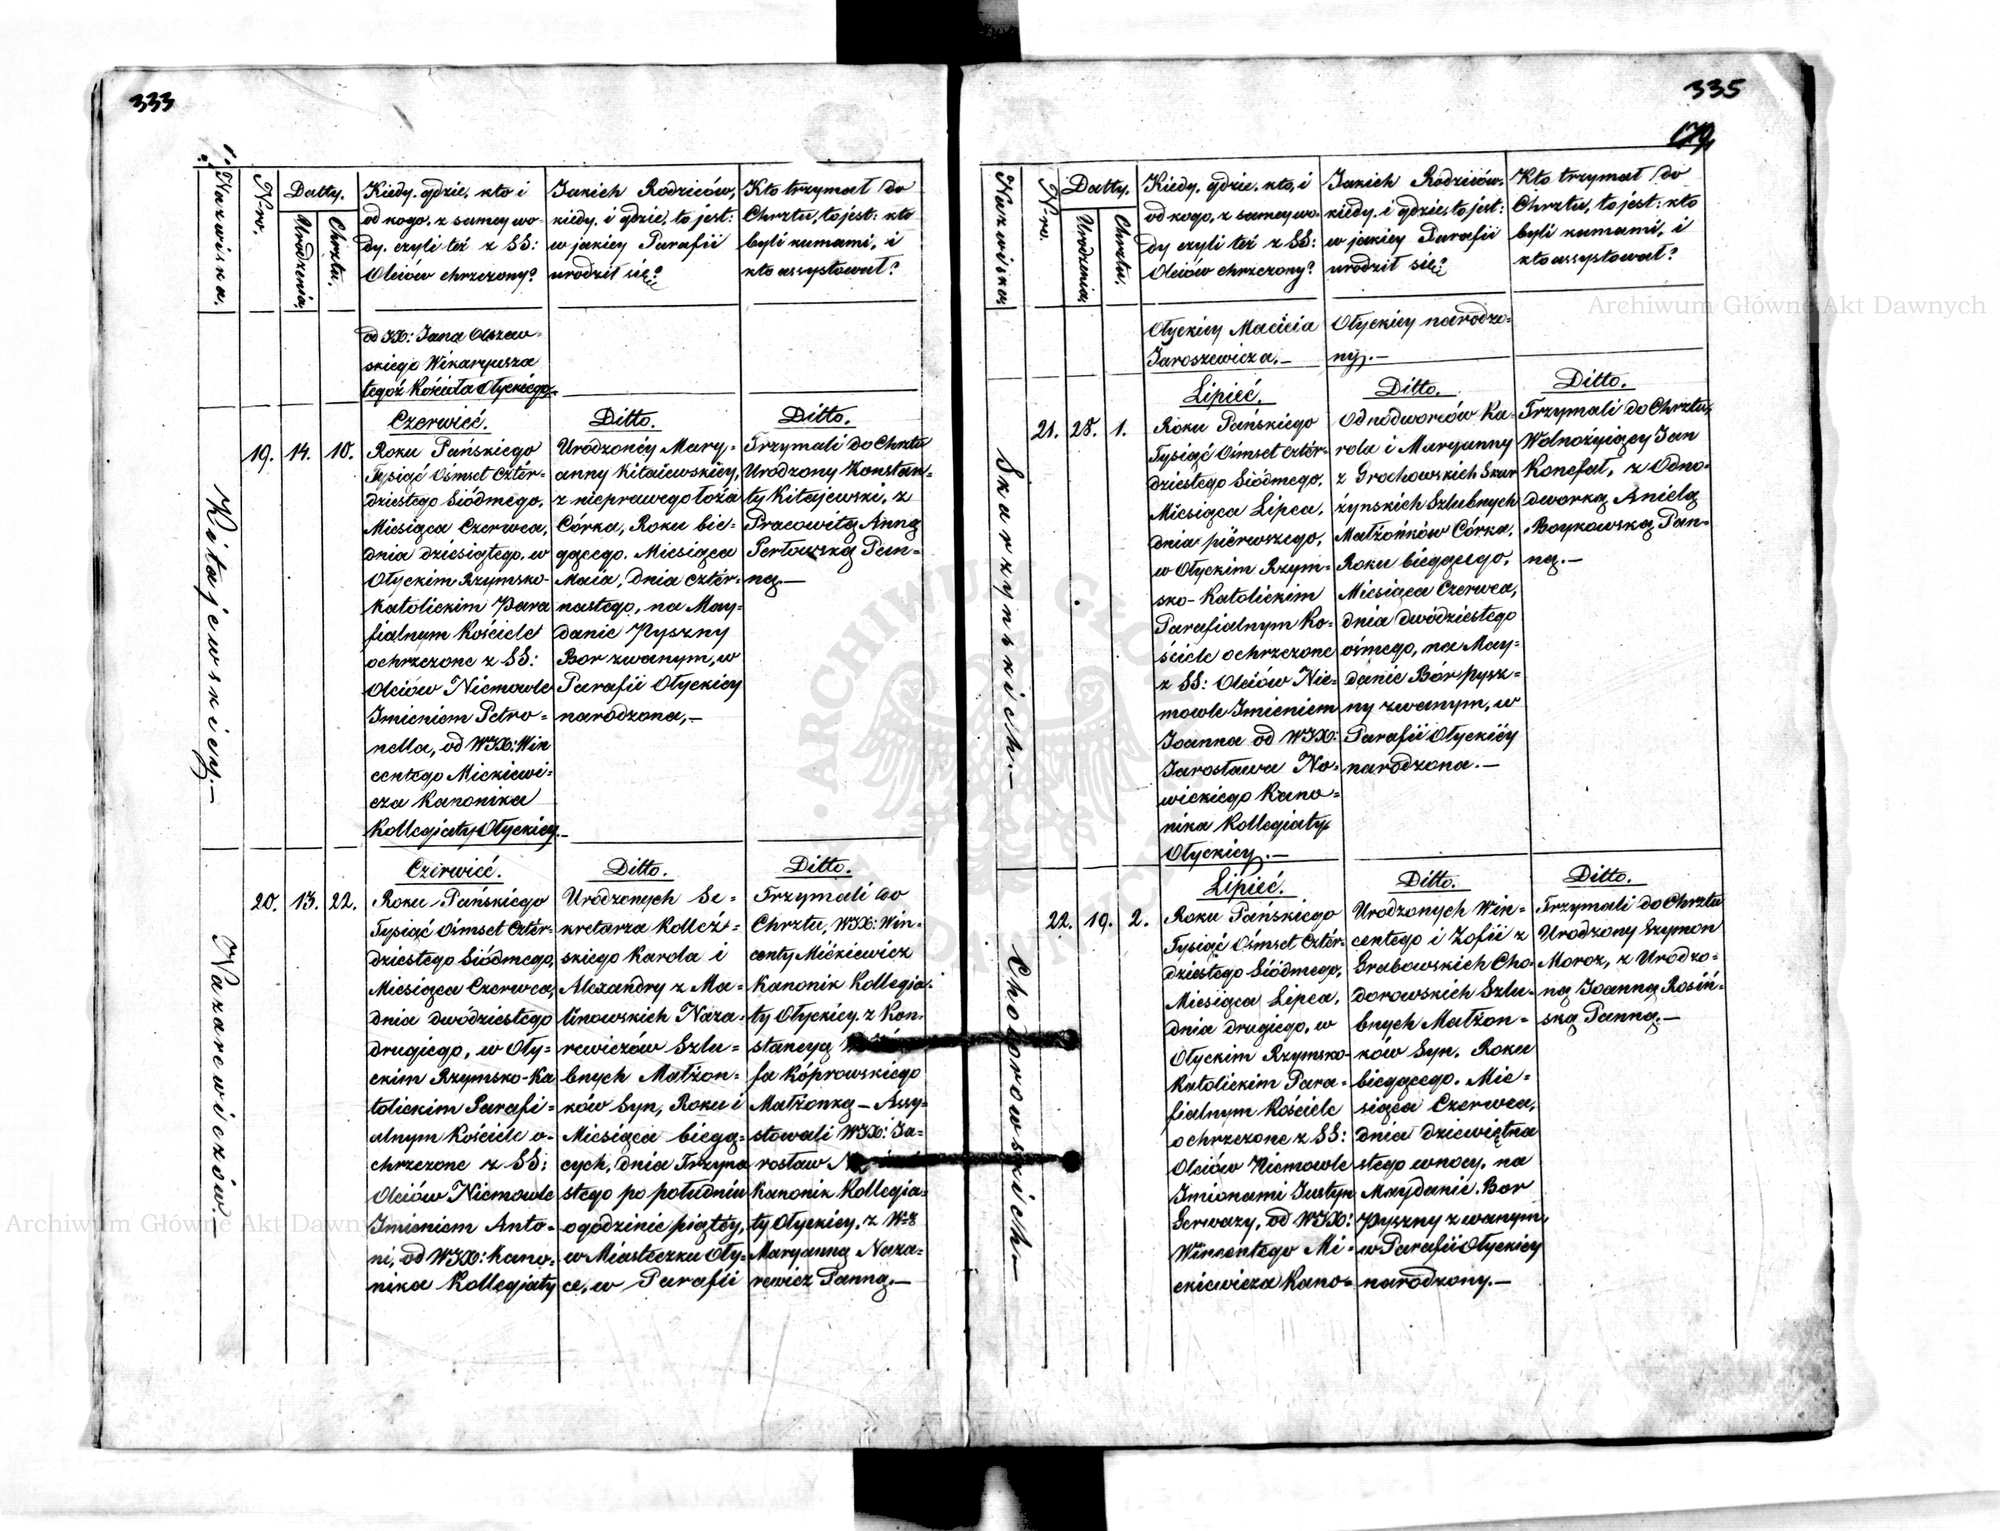 333
Nazwiska.
N-ro.
Datty.
Urodzenia.
Chrztu.
Kiedy, gdzie, kto i
od kogo, z samey wo-
dy, czyli też z SS:
Oleiów chrzczony?
Jakich Rodziców,
kiedy, i gdzie, to jest:
w jakiey Parafii
urodził się?
Kto trzymał do
Chrztu, to jest: kto
byli kumami, i
kto assystował?
od JX: Jana Olszew-
skiego Wikaryusza
tegoż Kościoła Ołyckiego.
Kitajewskiey.
19. 14. 10.
Czerwieć.
Roku Pańskiego
Tysiąć Ośmset Cztér-
dziestego Siódmego,
Miesiąca Czerwca,
dnia dziesiątego, w
Ołyckim Rzymsko-
Katolickim Para
fialnym Kościele
ochrzczone z SS:
Oleiów Niemowle
Imieniem Petro-
nella, od WJX: Win
centego Mickiewi-
cza Kanonika
Kollegiaty Ołyckiey.
Ditto.
Urodzonéy Mary-
anny Kitaiewskiéy,
z nieprawego łoża
Córka, Roku bie-
gącego, Miesiąca
Maia, dnia cztér-
nastego, na May-
danie Pyszny
Bor zwanym, w
Parafii Ołyckiey
narodzona,—
Ditto.
Trzymali do Chrztu
Urodzony Konstan-
ty Kitajewski, z
Pracowitą Anną
Perłowską Pan-
ną.—
Nazarewiczów.
20. 13. 22.
Czerwieć.
Roku Pańskiego
Tysiąć Ośmset Cztér-
dziestego Siódmego,
Miesiąca Czerwca,
dnia dwódziestego
drugiego, w Oły-
ckim Rzymsko-Ka
tolickim Parafi-
alnym Kościele o-
chrzczone z SS:
Oleiów Niemowle
Imieniem Anto-
ni, od WJX: Kano-
nika Kollegiaty
Ditto.
Urodzonych Se-
kretarza Kolleź-
skiego Karola i
Alexandry z Ma-
linowskich Naza-
rewiczów Szlu-
bnych Małżon-
ków Syn, Roku i
Miesiąca biegą-
cych, dnia Trzyna
stego po południu
o godzinie piątéy,
w Miasteczku Oły-
ce, w Parafii
Ditto.
Trzymali do
Chrztu, WJX: Win-
centy Mićkiewicz
Kanonik Kollegia-
ty Ołyckiey, z Kon-
stancyą
fa Kóprowskiego
Małżonką— Assy-
stowali WJX: Ja-
rosław
Kanonik Kollegia-
ty Ołyckiey, z
Maryanną Naza-
rewicz Panną.—
335
179.
Nazwiska.
N-ro.
Datty.
Urodzenia.
Chrztu.
Kiedy, gdzie, kto, i
od kogo, z samey wo-
dy czyli też z SS:
Oleiów chrzczony?
Jakich Rodziców,
kiedy, i gdzie, to jest:
w jakiey Parafii
urodził się?
Kto trzymał do
Chrztu, to jest: kto
byli kumami, i
kto assystował?
Ołyckiey Macieia
Jaroszewicza.—
Ołyckiey narodzo-
ny.—
Skarzynskich.—
21. 28. 1.
Lipieć.
Roku Pańskiego
Tysiąć Ośmset Cztér-
dziestego Siódmego,
Miesiąca Lipca,
dnia piérwszego,
w Ołyckim Rzym-
sko-Katolickim
Parafialnym Ko-
ściele ochrzczone
z SS: Oleiów Nie-
mowle Imieniem
Joanna od WJX:
Jarosława No-
wickiego Kano-
nika Kollegiaty
Ołyckiey.—
Ditto.
Odnodworców Ka-
rola i Maryanny
z Grochowskich Skar
żynskich Szlubnych
Małżónków Córka,
Roku biegącego,
Miesiąca Czerwca,
dnia dwódziestego
ośmego, na May-
danie Bór pysz-
ny zwanym, w
Parafii Ołyckiéy
narodzona.—
Ditto.
Trzymali do Chrztu,
Wolnożyiący Jan
Konefał, z Odno-
dworką Anielą
Boykowską Pan-
ną.—
Chodorowskich—
22. 19. 2.
Lipieć.
Roku Pańskiego
Tysiąć Ośmset Cztér-
dziestego Siódmego,
Miesiąca Lipca,
dnia drugiego, w
Ołyckim Rzymsko-
Katolickim Para-
fialnym Kościele
ochrzczone z SS:
Oleiów Niemowle
Imionami Justyn
Gerwazy, od WJX:
Wincentego Mi-
ckiewicza Kano-
Ditto.
Urodzonych Win-
centego i Zofii z
Grabowskich Cho-
dorowskich Szlu-
bnych Małżon-
ków Syn, Roku
biegącego, Mie-
siąca Czerwca,
dnia dziewiętna
stego w nocy, na
Maydanie Bor
Pyszny zwanym,
w Parafii Ołyckiey
narodzony.—
Ditto.
Trzymali do Chrztu
Urodzony Szymon
Moroz, z Urodzo-
ną Joanną Rosiń-
ską Panną.—
Archiwum Główne Akt Dawnych
Archiwum Główne Akt Dawnych